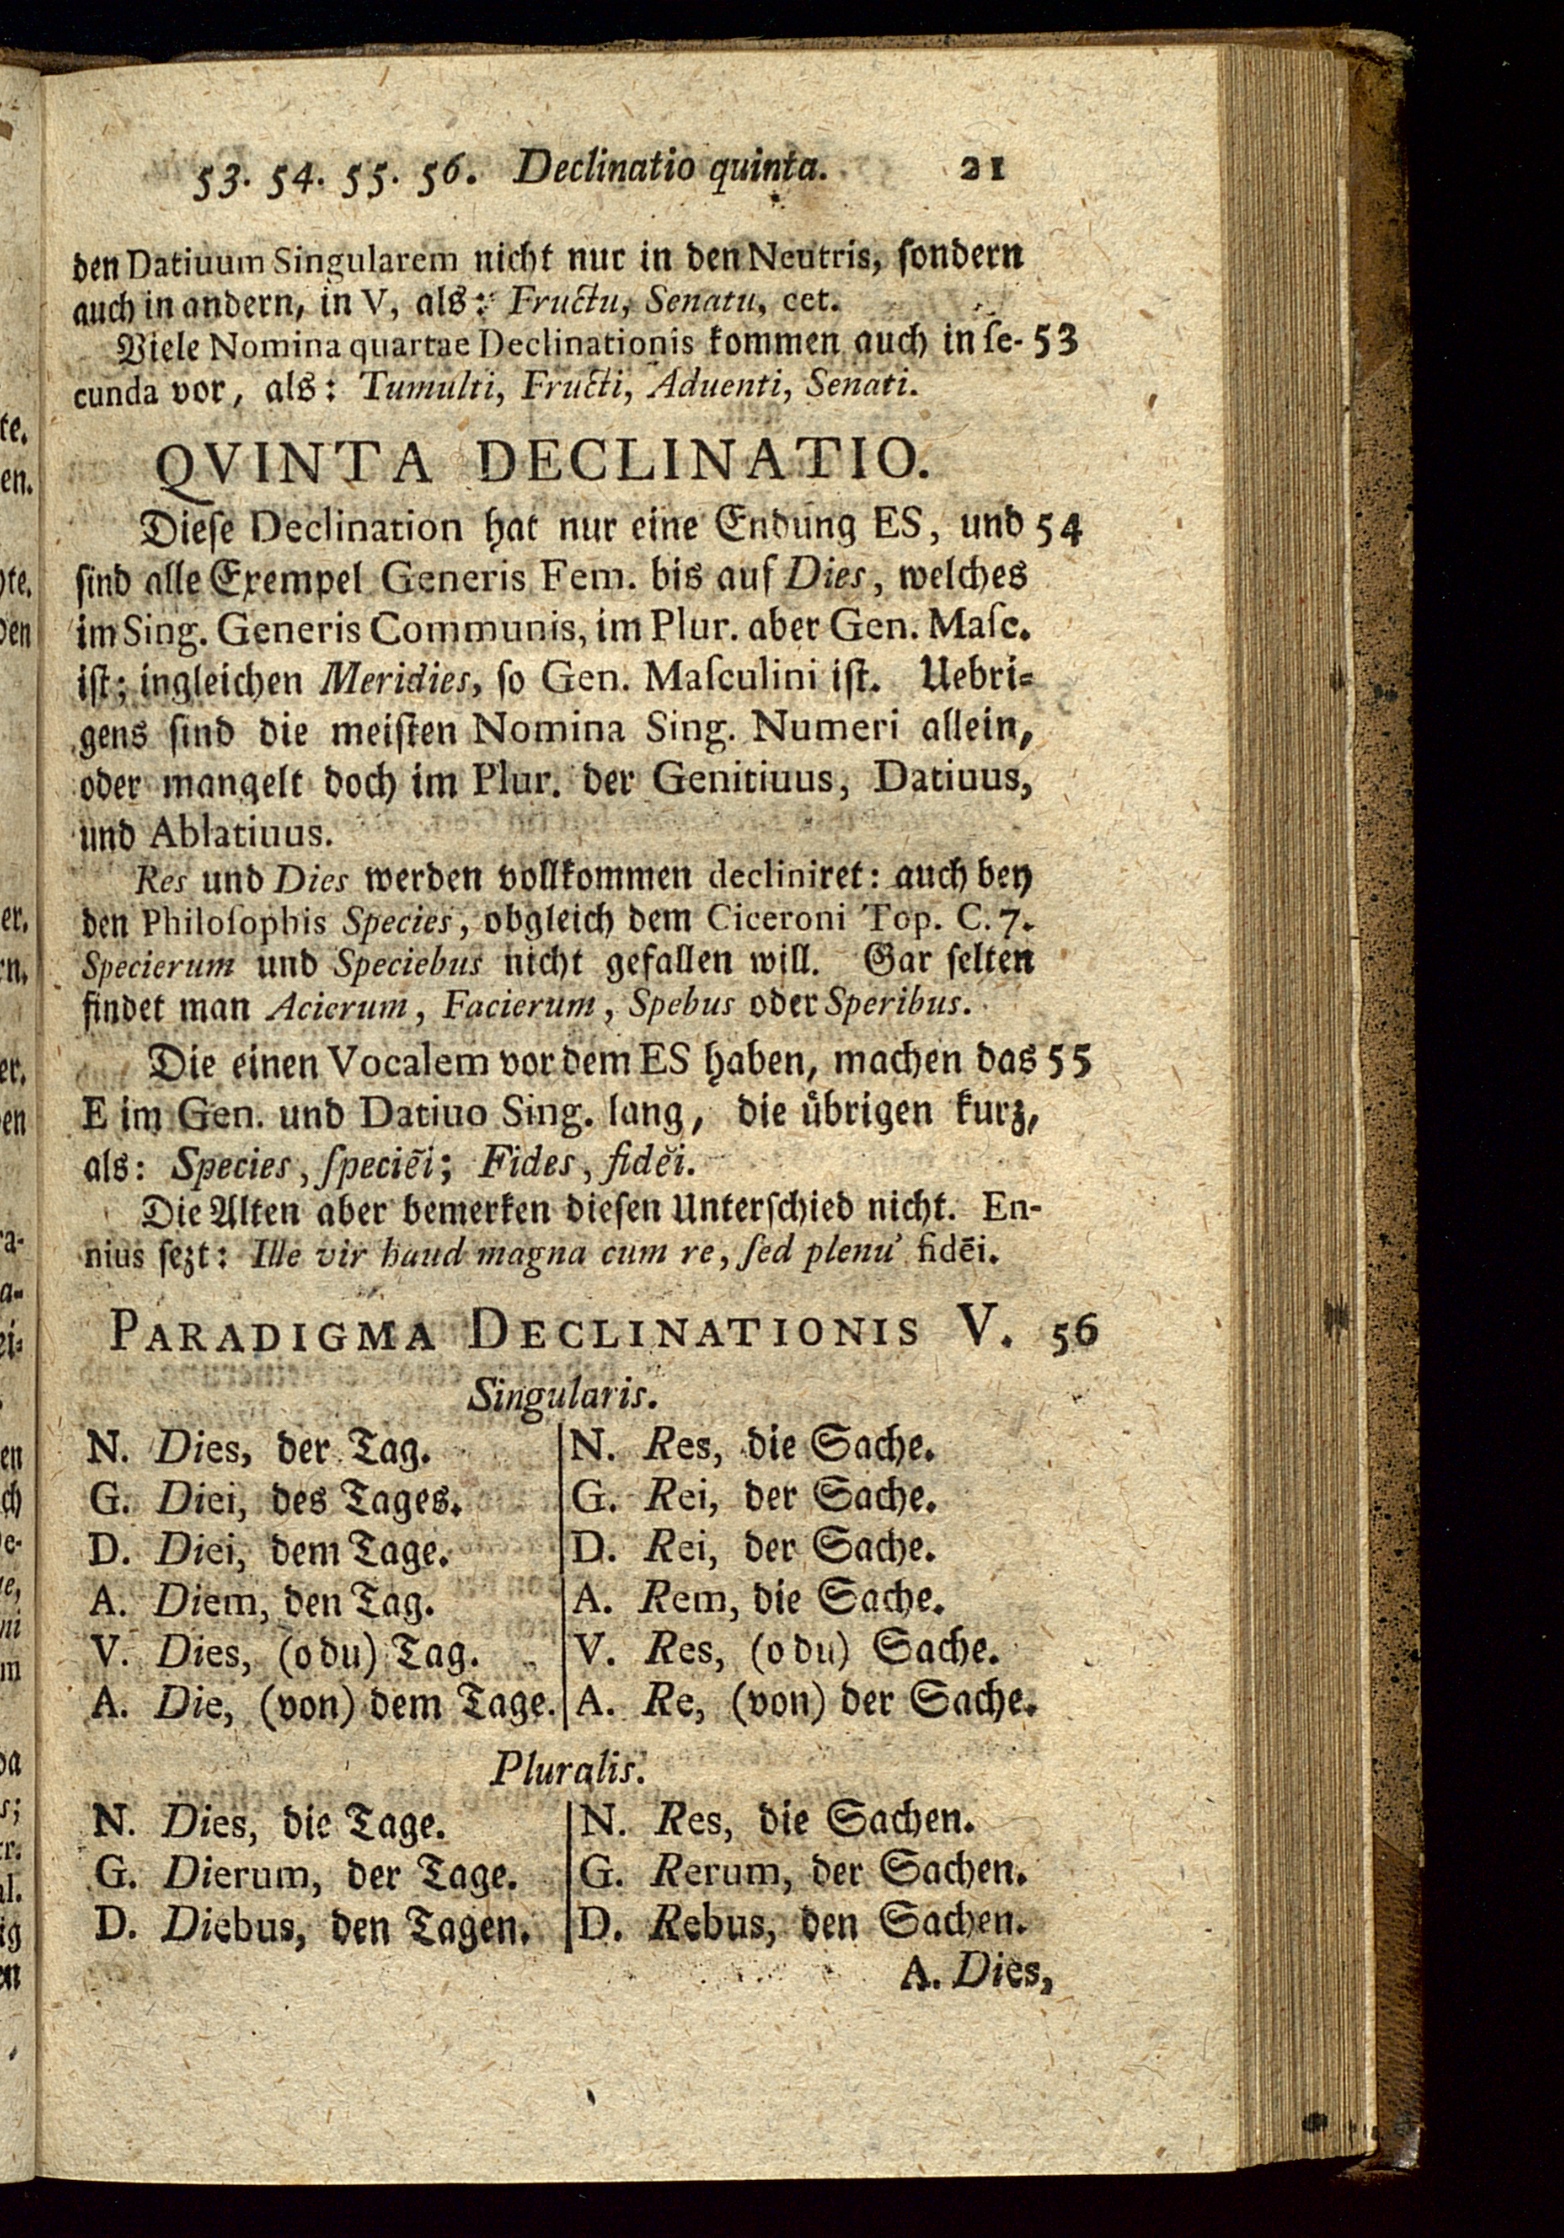 53. 54. 55. 56. Declinatio quinta. 21
den Datiuum Singularem nicht nur in den Neutris, sondern
auch in andern, in V, als: Fructu, Senatu, cet.
Viele Nomina quartae Declinationis kommen auch in ſe- 53
cunda vor, als: Tumulti, Fructi, Aduenti, Senati.
QVINTA DECLINATIO.
Dieſe Declination hat nur eine Endung ES, und 54
ſind alle Exempel Generis Fem. bis auf Dies, welches
im Sing. Generis Communis, im Plur. aber Gen. Maſc.
iſt; ingleichen Meridies, ſo Gen. Maſculini iſt. Uebri-
gens ſind die meiſten Nomina Sing. Numeri allein,
oder mangelt doch im Plur. der Genitiuus, Datiuus,
und Ablatiuus.
Res und Dies werden vollkommen decliniret: auch bey
den Philoſophis Species, obgleich dem Ciceroni Top. C. 7.
Specierum und Speciebus nicht gefallen will. Gar ſelten
findet man Acierum, Facierum, Spebus oder Speribus.
Die einen Vocalem vor dem ES haben, machen das 55
E im Gen. und Datiuo Sing. lang, die übrigen kurz,
als: Species, ſpeciēi; Fides, fidĕi.
Die Alten aber bemerken dieſen Unterſchied nicht. En-
nius ſezt: Ille vir haud magna cum re, ſed plenu' fidēi.
PARADIGMA DECLINATIONIS V. 56
Singularis.
N. Dies, der Tag. | N. Res, die Sache.
G. Diei, des Tages. | G. Rei, der Sache.
D. Diei, dem Tage. | D. Rei, der Sache.
A. Diem, den Tag. | A. Rem, die Sache.
V. Dies, (o du) Tag. | V. Res, (o du) Sache.
A. Die, (von) dem Tage. | A. Re, (von) der Sache.
Pluralis.
N. Dies, die Tage. | N. Res, die Sachen.
G. Dierum, der Tage. | G. Rerum, der Sachen.
D. Diebus, den Tagen. | D. Rebus, den Sachen.
A. Dies,